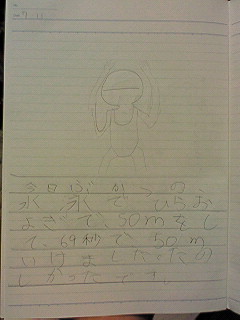 今日ぶかつの、
水泳で ひらお
よぎで、50mをし
て、69秒で、50m
いけました。たの
しかったです。